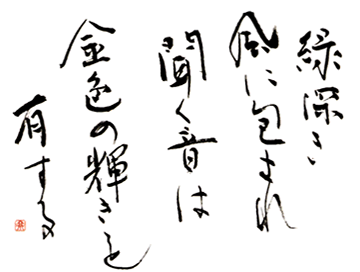 緑深き
風に包まれ
聞く音は
金色の輝きを
有する